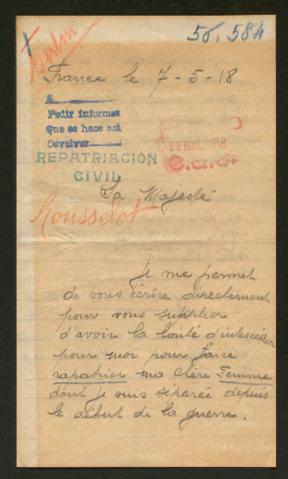 56.584
France le 7-5-18
A
Pedir informes
Que se hace asi
Devolver
REPATRIACIÓN
CIVIL
Sa Majesté
Rousselot
Je me permet
de vous écrire directement
pour vous supplier
d'avoir la bonté d'intercéder
pour moi pour faire
rapatrier ma chère Femme
dont je suis séparée depuis
le début de la guerre.